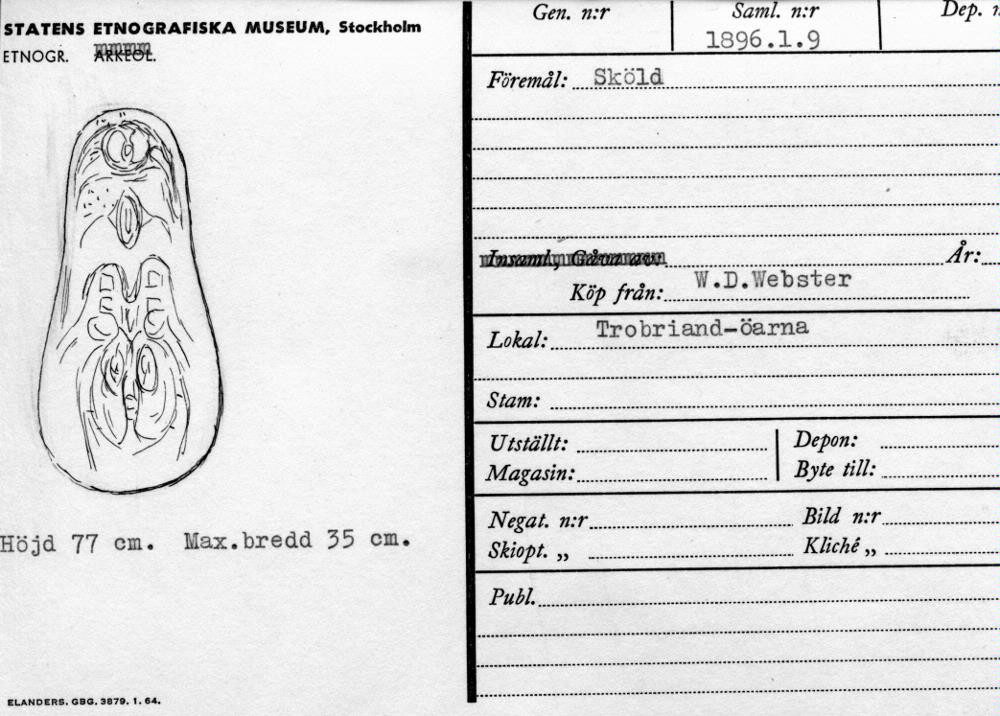 STATENS ETNOGRAFISKA MUSEUM, Stockholm
ETNOGR. ARKEOL.
Höjd 77 cm. Max.bredd 35 cm.
ELANDERS. GBG. 3879. 1. 64.
Gen. n:r Saml. n:r Dep.
1896.1.9
Föremål: Sköld
Insaml, Gåva av År:
Köp från: W.D.Webster
Lokal: Trobriand-öarna
Stam:
Utställt: Depon:
Magasin: Byte till:
Negat. n:r Bild n:r
Skiopt. „ Kliché „
Publ.